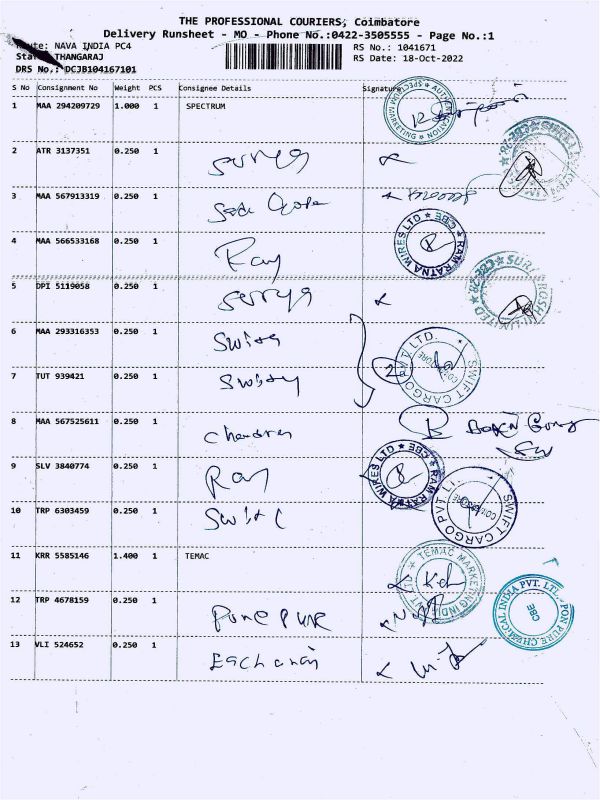 THE PROFESSIONAL COURIERS, Coimbatore
Delivery Runsheet - MO - Phone No.:0422-3505555 - Page No.:1
Route: NAVA INDIA PC4
THANGARAJ
DRS No.: DCJB104167101
RS No.: 1041671
RS Date: 18-Oct-2022
S No Consignment No Weight PCS Consignee Details Signature
1 MAA 294209729 1.000 1 SPECTRUM
2 ATR 3137351 0.250 1 surya
3 MAA 567913319 0.250 1
4 MAA 566533168 0.250 1 Ray
RAM RATNA WIRES LTD ★ CBE ★
5 DPI 5119058 0.250 1 surya
6 MAA 293316353 0.250 1 Swift
7 TUT 939421 0.250 1 2
SWIFT CARGO PVT. LTD.
COIMBATORE
8 MAA 567525611 0.250 1
9 SLV 3840774 0.250 1 Ray
RAM RATNA WIRES LTD ★ CBE ★
10 TRP 6303459 0.250 1 Swift
SWIFT CARGO PVT. LTD.
11 KRR 5585146 1.400 1 TEMAC
TEMAC MARKETING INDIA PVT LTD
12 TRP 4678159 0.250 1 Pone PURE
PON PURE CHEMICAL INDIA PVT. LTD.
CBE
13 VLI 524652 0.250 1